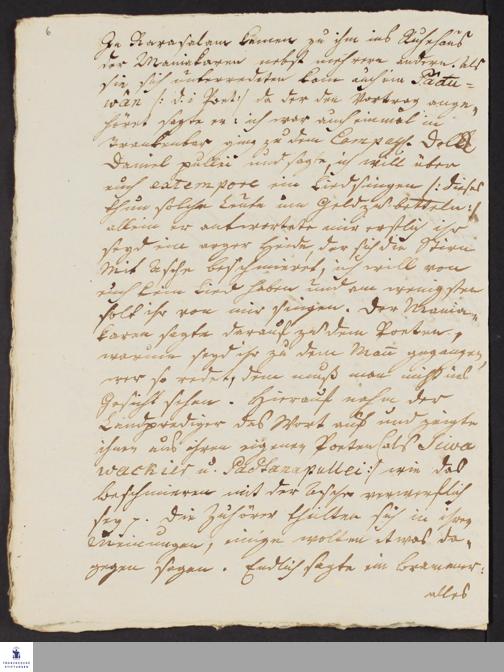 6
Zu Rarasalam kamen zu ihm ins Ruhehaus
der Maniakaren nebst mehrere andern. Als
sie sich unterredeten kam auch ein Padu-
wan /: d. i Poet :/ da der den Vortrag ange-
höret sagte er: ich war auch einmal in
Trankenbar ging zu dem Compagn. Dolle
Daniel pullei und sagte ich will über
euch extempore ein Lied singen /: dieses
thun solche Leute um Geld zu betteln :/
allein er antwortete mir erstlich ihr
seyd ein arger Heide der sich die Stirn
mit Asche beschmieret, ich will von
euch kein Lied haben und am wenigsten
solt ihr von mir singen. Der Mania-
karen sagte darauf zu dem Poeten,
warum seyd ihr zu dem Man gegangen,
wer so redet, dem muß man nicht ins
Gesicht sehen. Hierauf nahm der
Landprediger das Wort auf und zeigte
ihnen aus ihren eigenen Poeten /: als Siwa
wackier u. Paddanapullei :/ wie das
beschmieren mit der Asche verwerflich
sey. Die Zuhörer theilten sich in ihren
Meinungen, einige wolten etwas da-
gegen sagen. Endlich sagte ein Bramaner:
alles
FRANCKESCHE
STIFTUNGEN